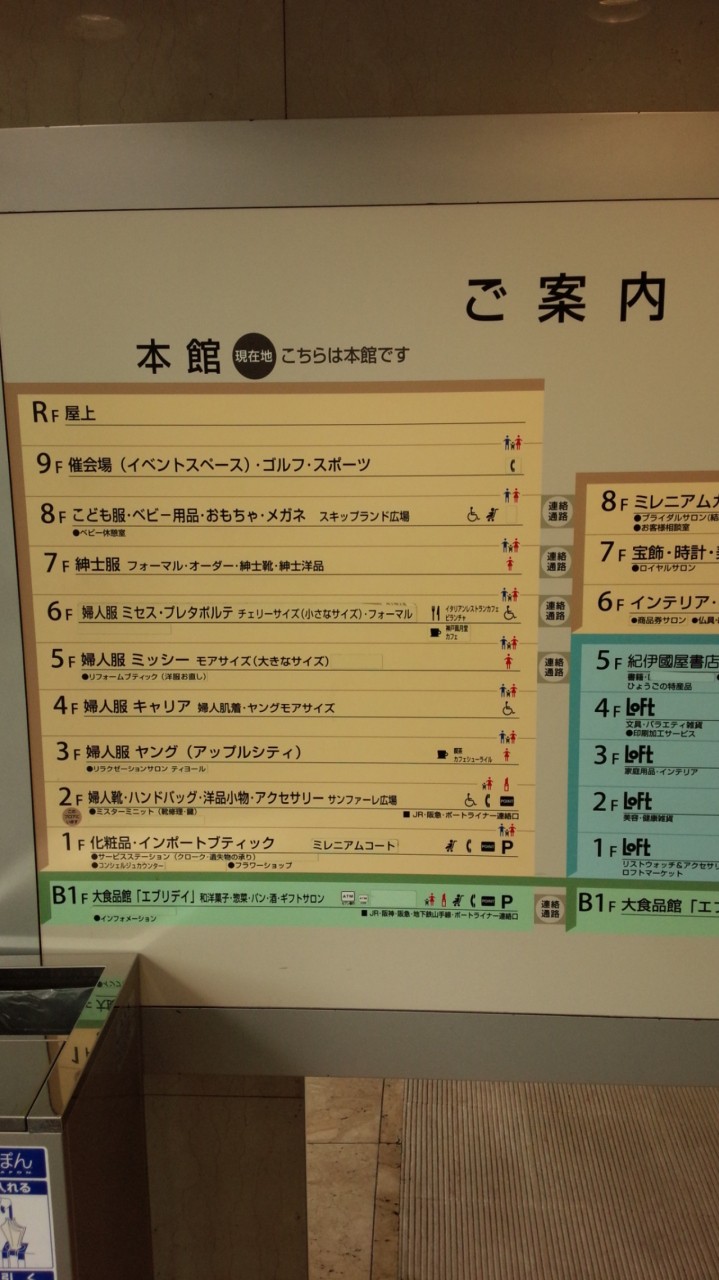 ご案内
本館 現在地 こちらは本館です
RF 屋上
9F 催会場（イベントスペース）・ゴルフ・スポーツ
8F こども服・ベビー用品・おもちゃ・メガネ スキップランド広場
●ベビー休憩室
7F 紳士服 フォーマル・オーダー・紳士靴・紳士洋品
6F 婦人服 ミセス・プレタポルテ チェリーサイズ(小さなサイズ)・フォーマル
イタリアンレストランカフェ
ピランチャ
神戸風月堂
カフェ
5F 婦人服 ミッシー モアサイズ(大きなサイズ)
●リフォームブティック（洋服お直し）
4F 婦人服 キャリア 婦人肌着・ヤングモアサイズ
3F 婦人服 ヤング（アップルシティ）
喫茶
カフェシューライル
●リラクゼーションサロン ティヨール
2F 婦人靴・ハンドバッグ・洋品小物・アクセサリー サンファーレ広場
●ミスターミニット（靴修理・鍵）
■JR・阪急・ポートライナー連絡口
1F 化粧品・インポートブティック ミレニアムコート P
●サービスステーション（クローク・遺失物の承り）
●コンシェルジュカウンター ●フラワーショップ
B1F 大食品館「エブリデイ」和洋菓子・惣菜・パン・酒・ギフトサロン ATM P
●インフォメーション
■JR・阪神・阪急・地下鉄山手線・ポートライナー連絡口
連絡通路
連絡通路
連絡通路
連絡通路
連絡通路
8F ミレニアム
●ブライダルサロン
●お客様相談室
7F 宝飾・時計・
●ロイヤルサロン
6F インテリア・
●商品券サロン ●仏具
5F 紀伊國屋書店
書籍・
ひょうごの特産品
4F Loft
文具・バラエティ雑貨
●印刷加工サービス
3F Loft
家庭用品・インテリア
2F Loft
美容・健康雑貨
1F Loft
リストウォッチ&アクセサリ
ロフトマーケット
B1F 大食品館「エブ
ぽん
入れる